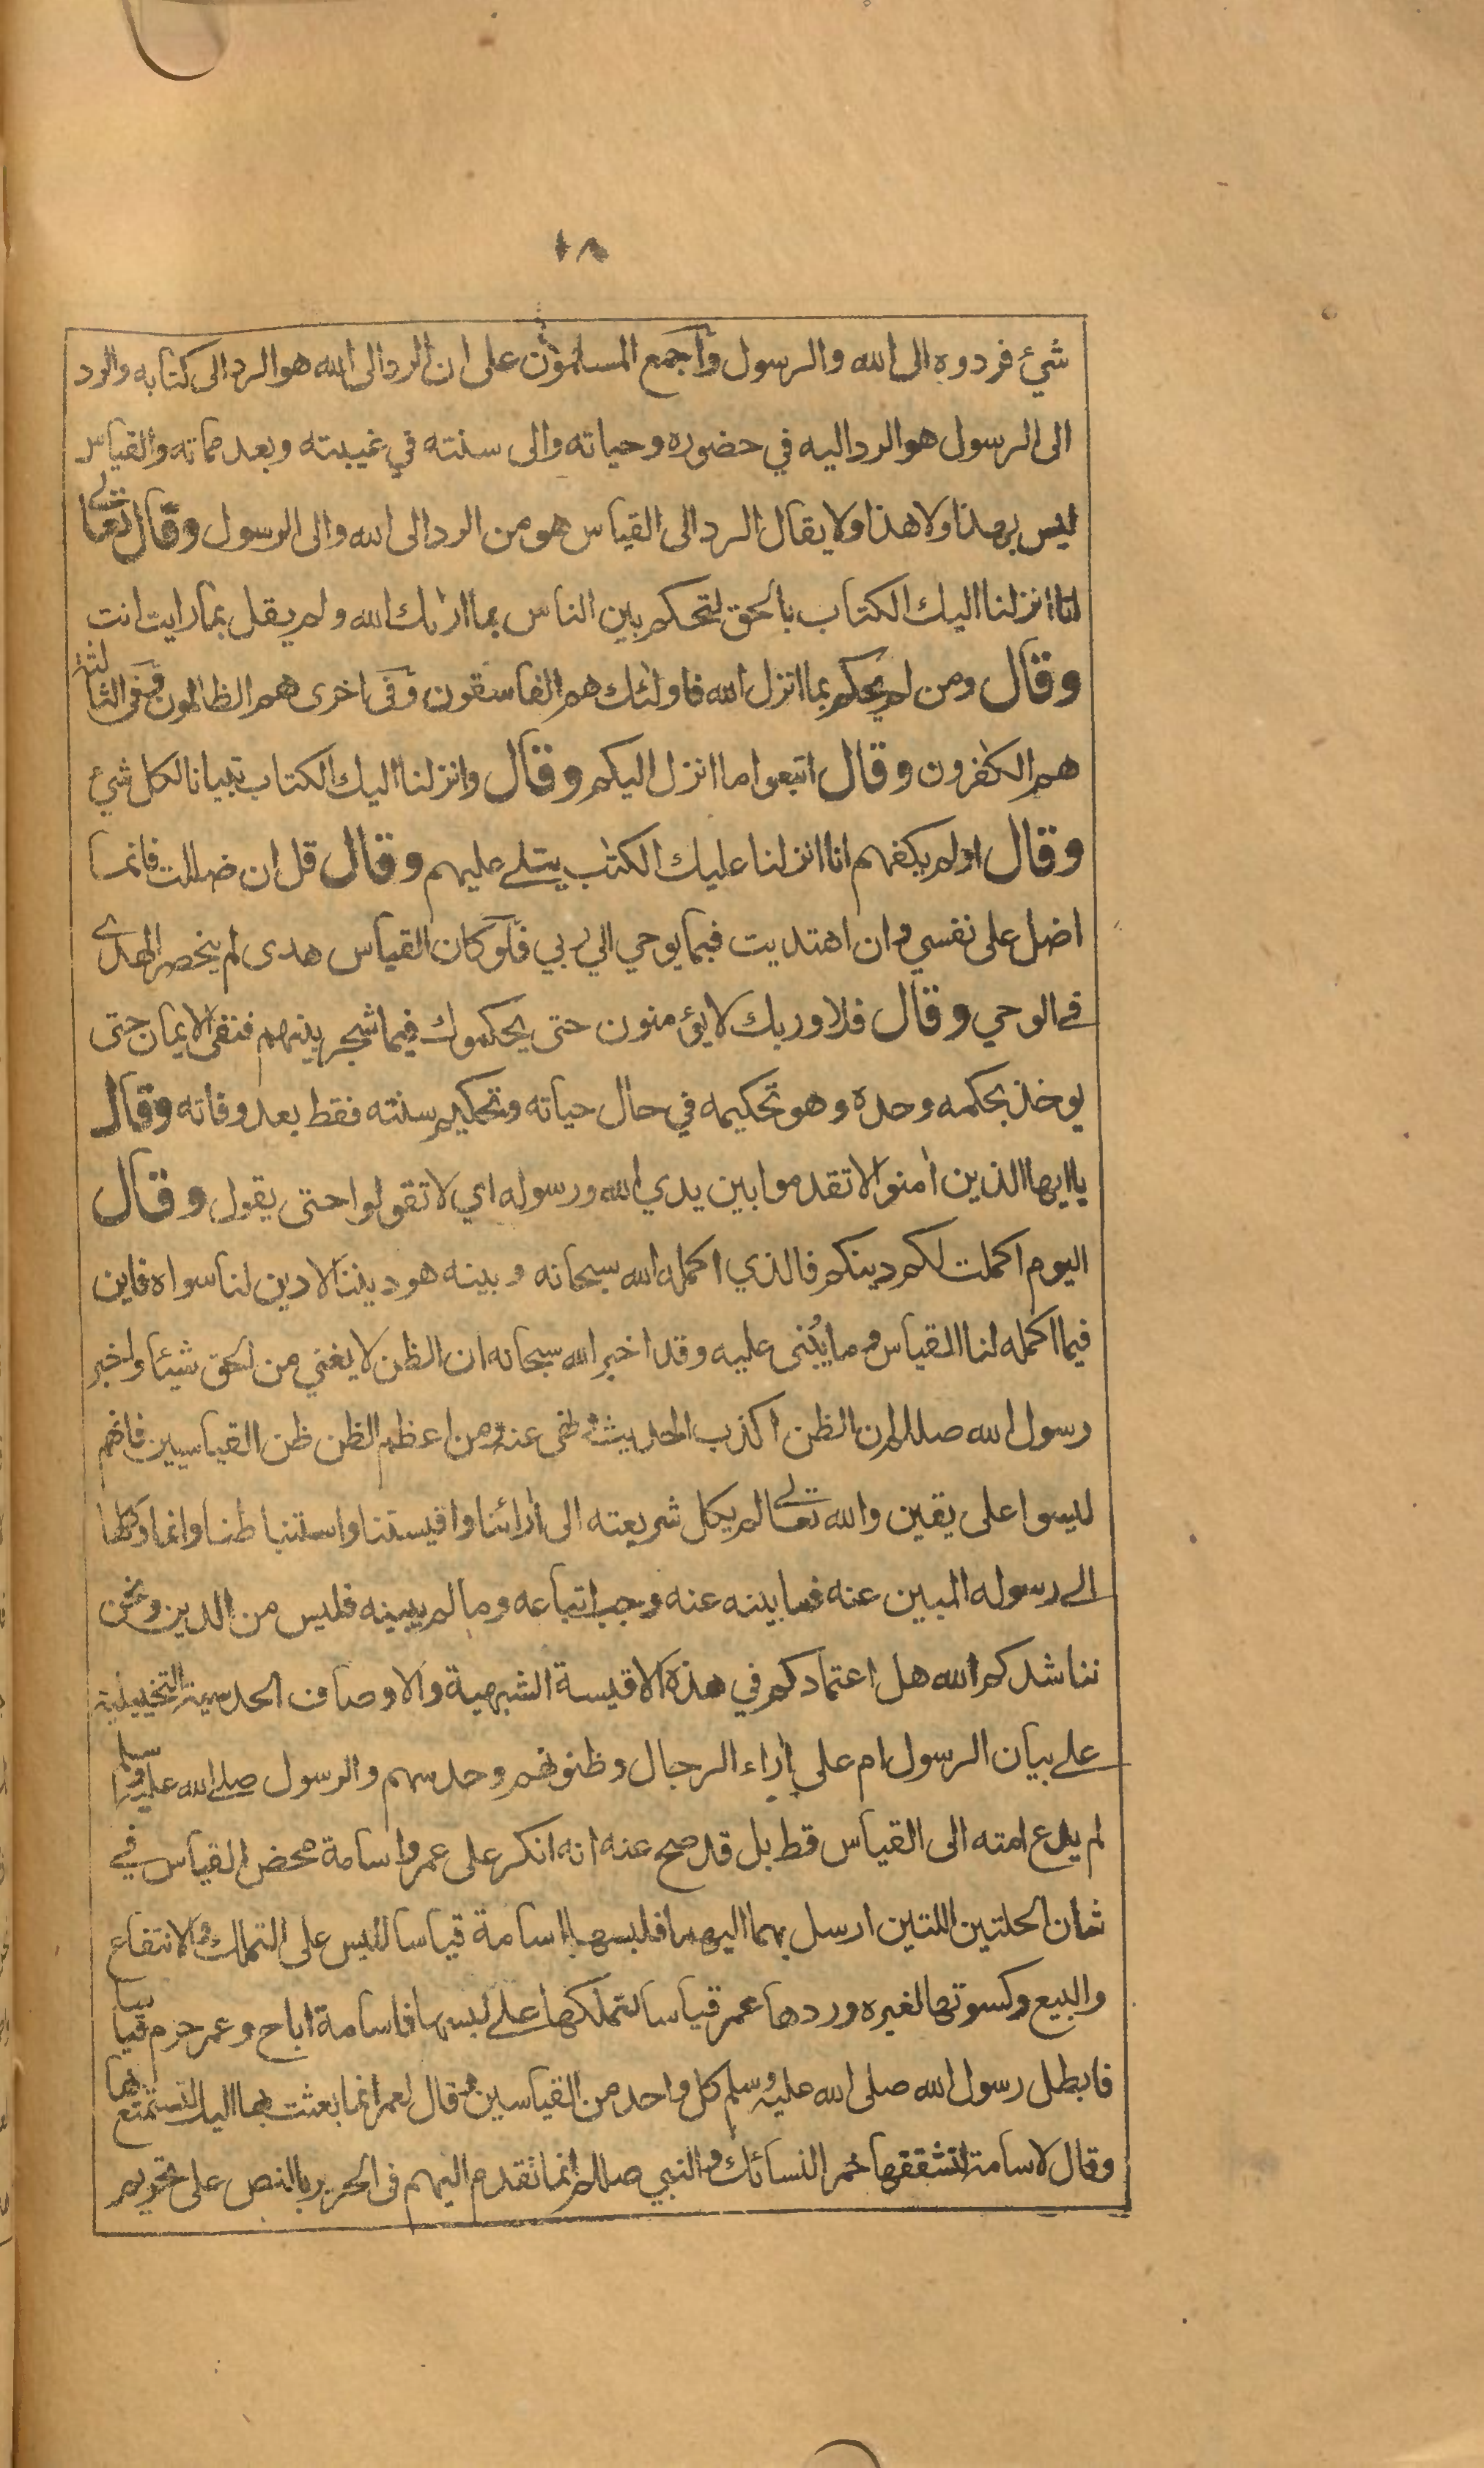 ١٨
شيئ فردوه الى الله والرسول وأجمع المسلمون على ان الرد الى الله هو الرد الى كتابه والرد
الى الرسول هو الرد اليه في حضوره وحياته والى سنته في غيبته وبعد مماته والقياس
ليس بهذا ولا هذا ولا يقال الرد الى القياس هو من الرد الى الله والى الرسول وقال تعالے
انا انزلنا اليك الكتاب بالحق لتحكم بين الناس بما اراك الله ولم يقل بما رايت انت
وقال ومن لم يحكم بما انزل الله فاولئك هم الفاسقون وفى اخرى هم الظالمون وفى الثالثة
هم الكفرون وقال اتبعوا ما انزل اليكم وقال وانزلنا اليك الكتاب تبيانا لكل شيئ
وقال اولم يكفهم انا انزلنا عليك الكتٰب يتلے عليهم وقال قل ان ضللت فانما
اضل على نفسي وان اهتديت فبما يوحي الي ربي فلو كان القياس هدى لم ينحصر الهدے
فے الوحي وقال فلا وربك لا يؤمنون حتى يحكموك فيما شجر بينهم فنفى الايمان حتى
يوخذ بحكمه وحده وهو تحكيمه في حال حياته وتحكيم سنته فقط بعد وفاته وقال
يا ايها الذين اٰمنوا لا تقدموا بين يدي الله ورسوله اي لا تقولوا حتى يقول وقال
اليوم اكملت لكم دينكم فالذي اكمله الله سبحانه وبينه هو ديننا لا دين لنا سواه فاين
فيما اكمله لنا القياس وما يُبنى عليه وقد اخبر الله سبحانه ان الظن لا يغني من الحق شيئا واخبر
رسول الله صللم ان الظن اكذب الحديث ونهى عنه ومن اعظم الظن ظن القياسيين فانهم
ليسوا على يقين والله تعالے لم يكل شريعته الى اٰرائنا واقيستنا واستنباطنا وانما وكلها
الے رسوله المبين عنه فما بينه عنه وجب اتباعه وما لم يبينه فليس من الدين ونحن
نناشدكم الله هل اعتمادكم في هذه الاقيسة الشبهية والاوصاف الحدسية التخييلية
علے بيان الرسول ام على اٰراء الرجال وظنونهم وحدسهم والرسول صلے الله عليه وسلم
لم يدع امته الى القياس قط بل قد صح عنه انه انكر على عمر واسامة محض القياس فے
شان الحلتين اللتين ارسل بهما اليهما فلبسها اسامة قياسا للبس على التملك والانتفاع
والبيع وكسوتها لغيره وردها عمر قياسا لتملكها علے لبسها فاسامة اباح وعمر حرم قياسا
فابطل رسول الله صلى الله عليه وسلم كل واحد من القياسين وقال لعمر انما بعثت بها اليك لتستمتع بها
وقال لاسامة لتشققها خمر النسائك والنبي صللم انما تقدم اليهم فى الحرير بالنص على تحريم